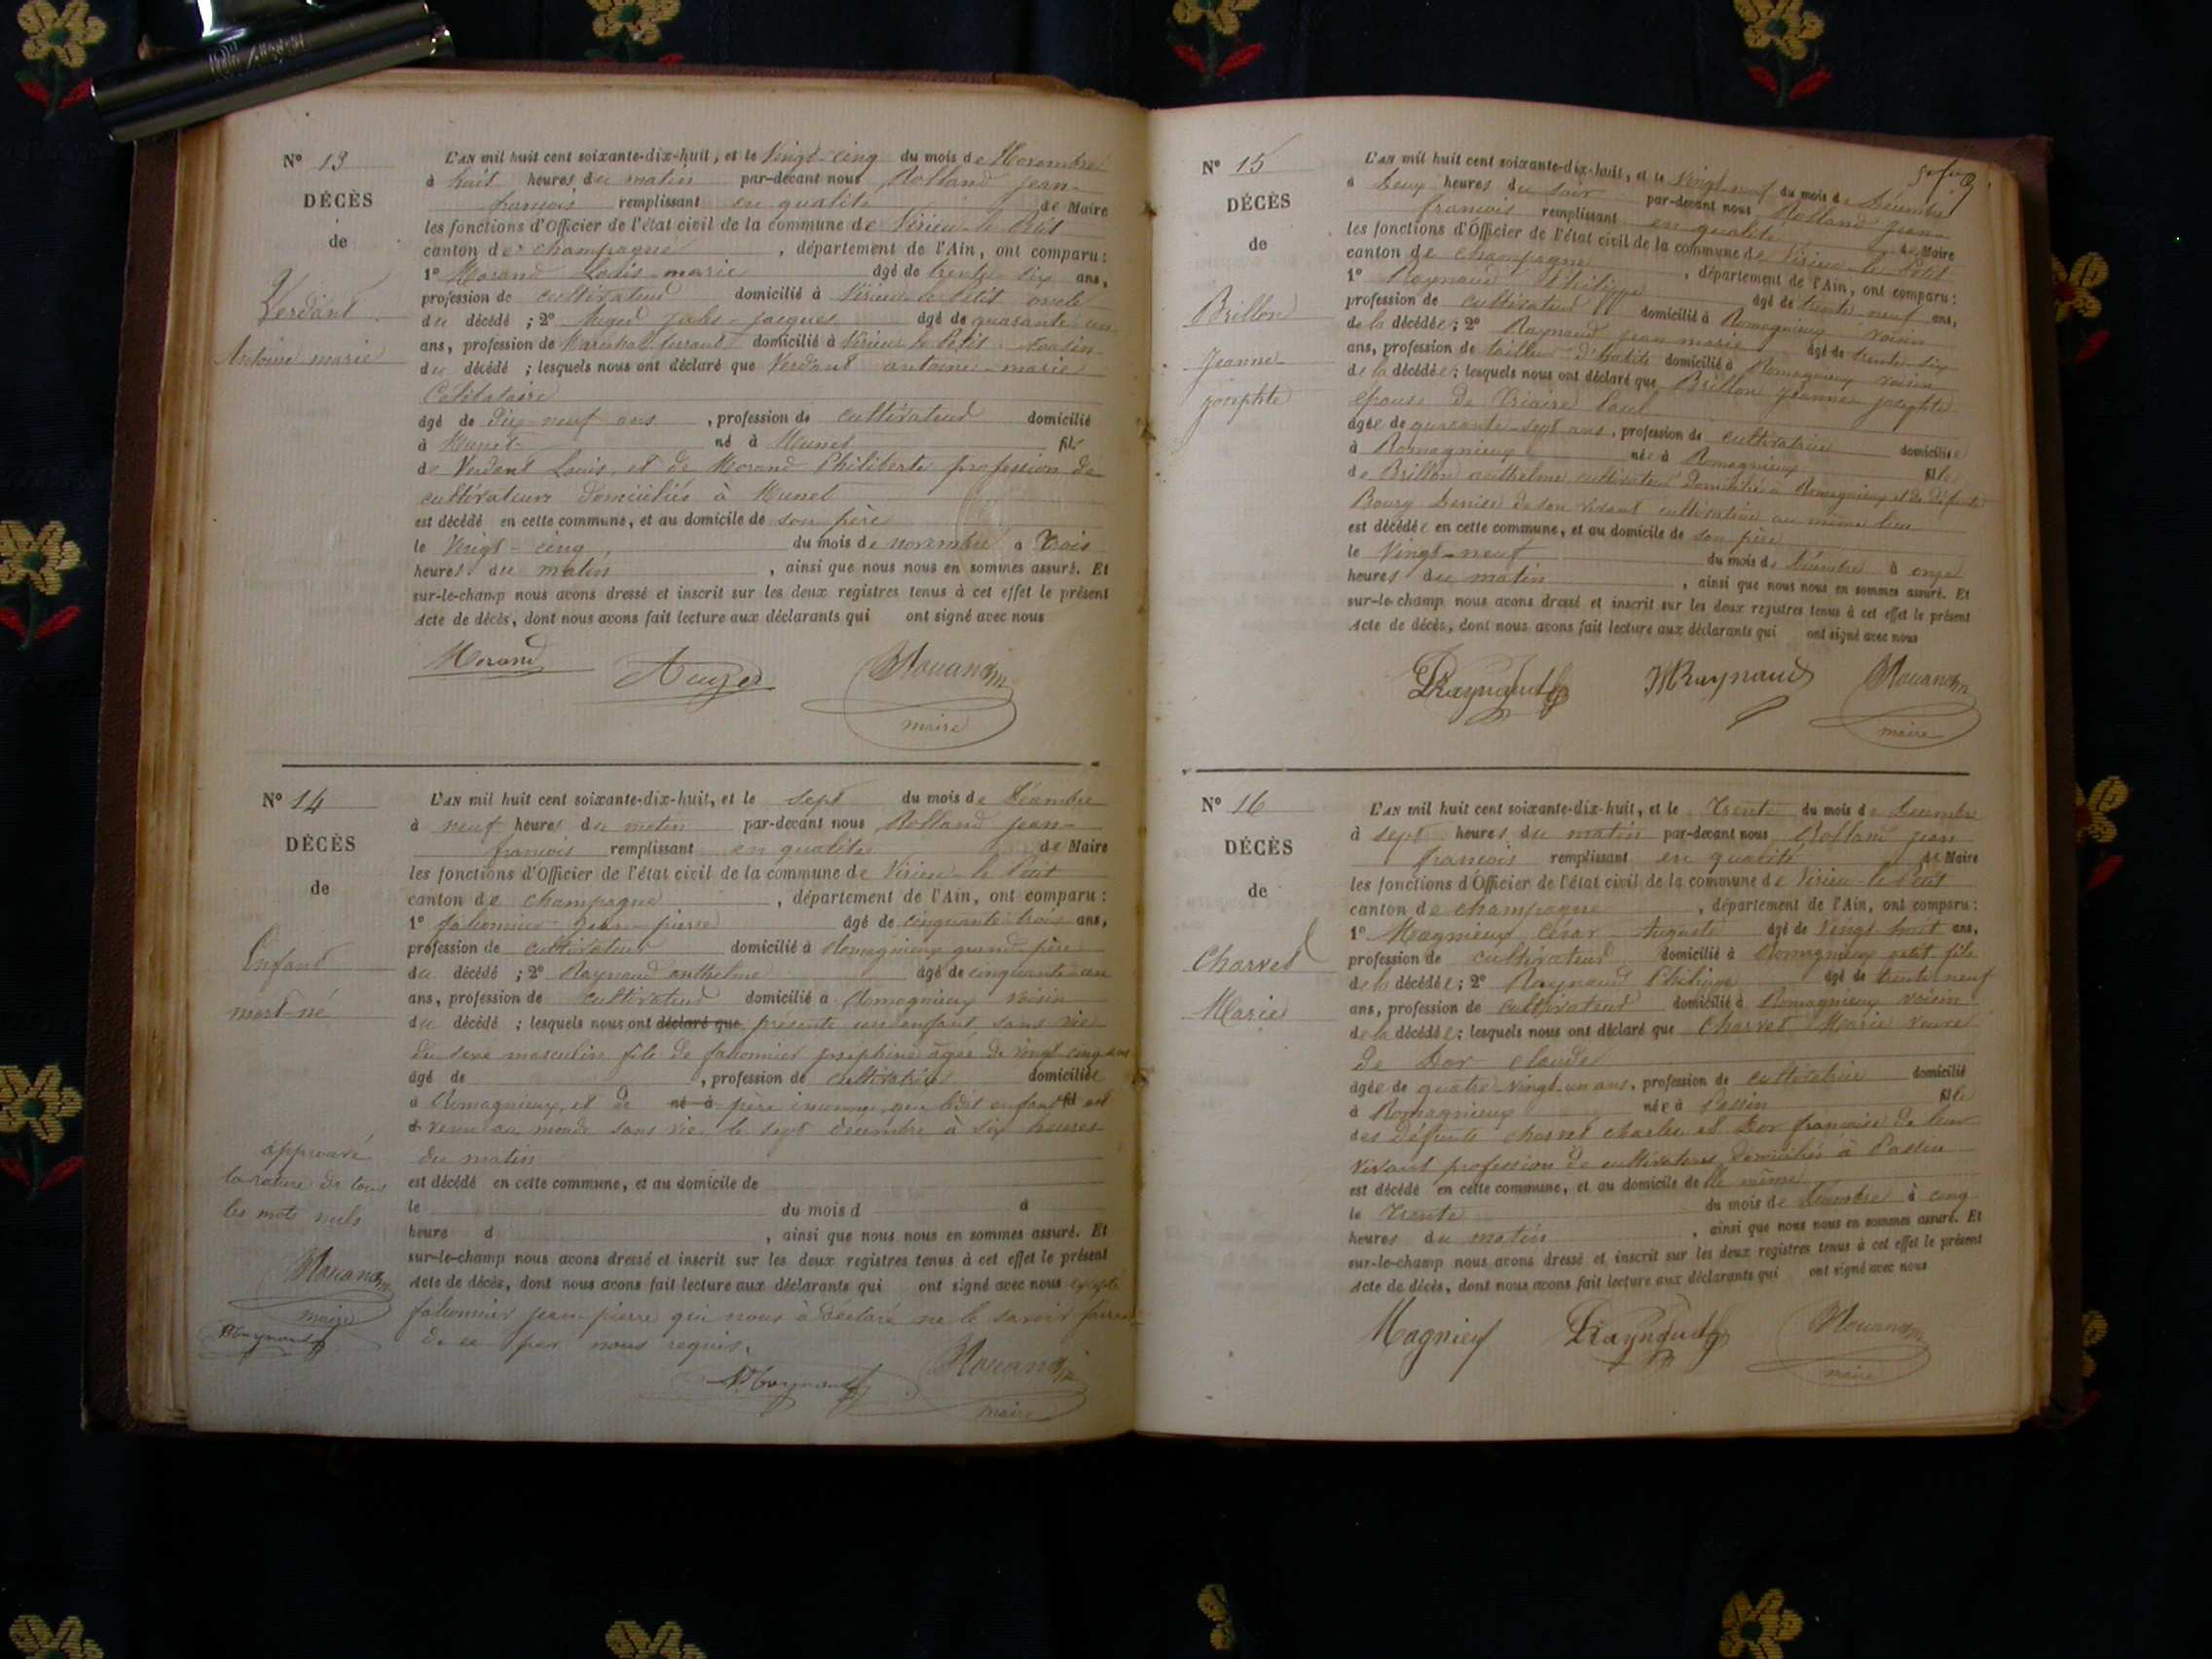 Nº 13
DÉCÈS
de
Verdant
Antoine marie
L'AN mil huit cent soixante-dix-huit, et le Vingt-cinq du mois de Novembre
à huit heures du matin par-devant nous Rolland jean-
francois remplissant en qualité de Maire
les fonctions d'Officier de l'état civil de la commune de Virieu-le-Petit
canton de champagne, département de l'Ain, ont comparu:
1º Morand Louis marie âgé de trente-six ans,
profession de cultivateur domicilié à Virieu-le-Petit oncle
du décédé; 2º jacques âgé de quarante un
ans, profession de Maréchal ferrant domicilié à Virieu le Petit
du décédé; lesquels nous ont déclaré que Verdant antoine-marie
Célibataire
âgé de Dix neuf ans, profession de cultivateur domicilié
à Munet né à Munet fils
de Verdant Louis et de Morand Philiberte profession de
cultivateurs domiciliés à Munet
est décédé en cette commune, et au domicile de son père
le Vingt-cinq du mois de novembre à Trois
heures du matin, ainsi que nous nous en sommes assuré. Et
sur-le-champ nous avons dressé et inscrit sur les deux registres tenus à cet effet le présent
Acte de décès, dont nous avons fait lecture aux déclarants qui ont signé avec nous
Morand
maire
Nº 14
DÉCÈS
de
Enfant
mort-né
L'AN mil huit cent soixante-dix-huit, et le sept du mois de Décembre
à neuf heures du matin par-devant nous Rolland jean-
francois remplissant en qualité de Maire
les fonctions d'Officier de l'état civil de la commune de Virieu-le Petit
canton de champagne, département de l'Ain, ont comparu:
1º falconnier jean-pierre âgé de cinquante trois ans,
profession de cultivateur domicilié à Romagnieux grand-père
du décédé; 2º Raynaud anthelme âgé de cinquante un
ans, profession de cultivateur domicilié à Romagnieux voisin
du décédé; lesquels nous ont déclaré que présenté un enfant sans vie
du sexe masculin fils de falconnier josephine âgée de vingt-cinq ans
âgé de, profession de cultivatrice domiciliée
à Romagnieux et de né à père inconnu que ledit enfant fil est
venu au monde sans vie le sept décembre à six heures
du matin
est décédé en cette commune, et au domicile de
le du mois d à
heure d, ainsi que nous nous en sommes assuré. Et
sur-le-champ nous avons dressé et inscrit sur les deux registres tenus à cet effet le présent
Acte de décès, dont nous avons fait lecture aux déclarants qui ont signé avec nous excepté
falconnier jean-pierre qui nous à déclaré ne le savoir faire
de ce par nous requis.
maire
approuvé
la rature de tous
les mots nuls
maire
Nº 15
DÉCÈS
de
Brillon
Jeanne
josephte
L'AN mil huit cent soixante-dix-huit, et le Vingt-neuf du mois de Décembre
à Deux heures du soir par-devant nous Rolland jean-
francois remplissant en qualité de Maire
les fonctions d'Officier de l'état civil de la commune de Virieu-le Petit
canton de champagne, département de l'Ain, ont comparu:
1º Raynaud Philippe âgé de trente neuf ans,
profession de cultivateur domicilié à Romagnieux voisin
de la décédée; 2º Raynaud jean marie âgé de trente-six
ans, profession de tailleur d'habits domicilié à Romagnieux voisin
de la décédée; lesquels nous ont déclaré que Brillon Jeanne josephte
épouse de Paul
âgée de quarante-sept ans, profession de cultivatrice domiciliée
à Romagnieux née à Romagnieux fille
de Brillon anthelme cultivateur domicilié à Romagnieux et de défunte
Bourg Denise de son vivant cultivatrice au même lieu
est décédée en cette commune, et au domicile de son père
le Vingt-neuf du mois de Décembre à onze
heures du matin, ainsi que nous nous en sommes assuré. Et
sur-le-champ nous avons dressé et inscrit sur les deux registres tenus à cet effet le présent
Acte de décès, dont nous avons fait lecture aux déclarants qui ont signé avec nous
Raynaud
JMRaynaud
maire
Nº 16
DÉCÈS
de
Charvet
Marie
L'AN mil huit cent soixante-dix-huit, et le Trente du mois de Decembre
à sept heures du matin par-devant nous Rolland jean
francois remplissant en qualité de Maire
les fonctions d'Officier de l'état civil de la commune de Virieu-le Petit
canton de champagne, département de l'Ain, ont comparu:
1º Magnieux César Auguste âgé de Vingt huit ans,
profession de cultivateur domicilié à Romagnieux petit fils
de la décédée; 2º Raynaud Philippe âgé de trente neuf
ans, profession de cultivateur domicilié à Romagnieux voisin
de la décédée; lesquels nous ont déclaré que Charvet Marie veuve
de Dor claude
âgée de quatre-vingt-un ans, profession de cultivatrice domicilié
à Romagnieux née à Passin fille
des Défunts charvet charles et Dor francoise de leur
vivant profession de cultivateurs domiciliés à Passin
est décédé en cette commune, et au domicile de elle même
le Trente du mois de Décembre à cinq
heures du matin, ainsi que nous nous en sommes assuré. Et
sur-le-champ nous avons dressé et inscrit sur les deux registres tenus à cet effet le présent
Acte de décès, dont nous avons fait lecture aux déclarants qui ont signé avec nous
Magnieux
Raynaud
maire